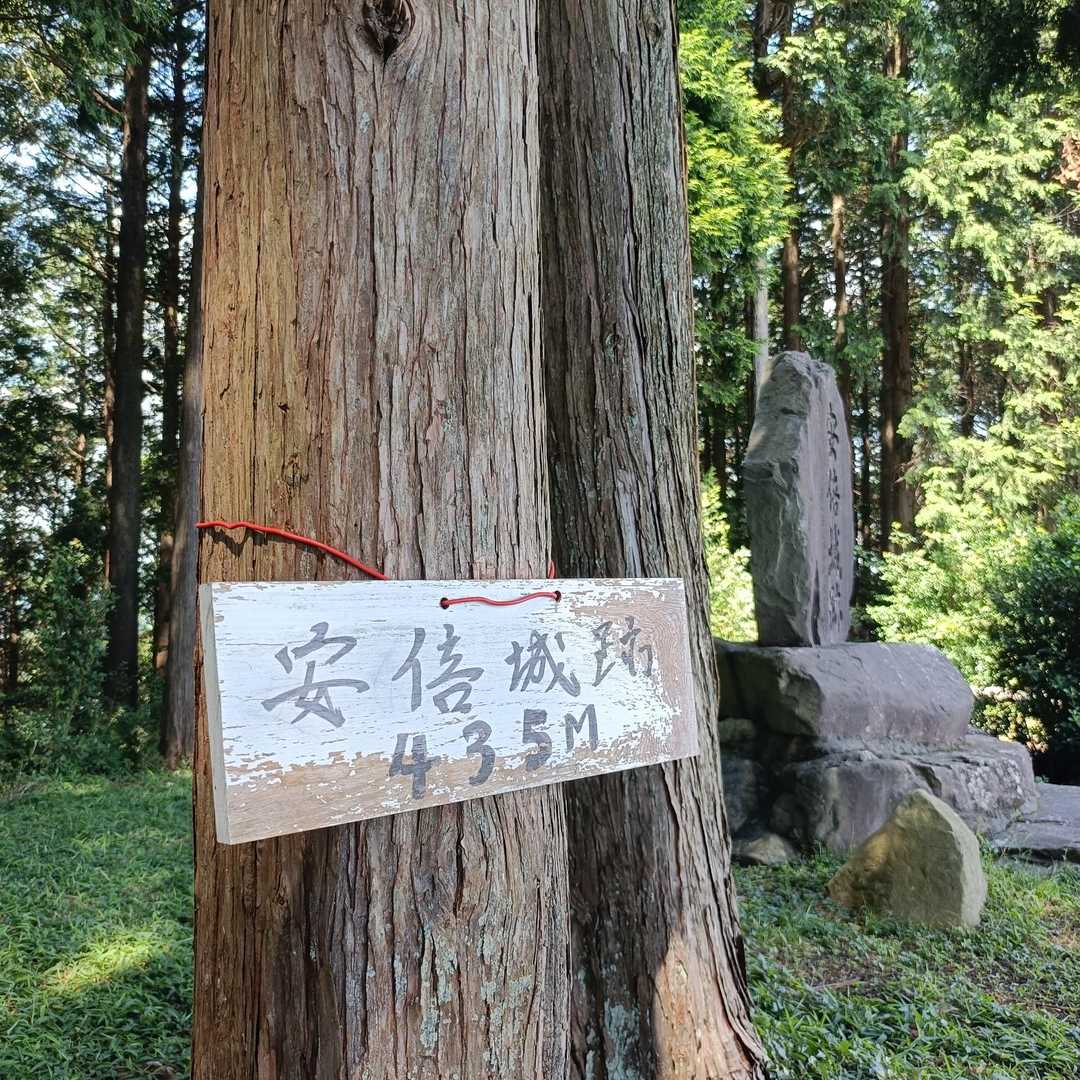 安倍城跡
435M
安倍城跡